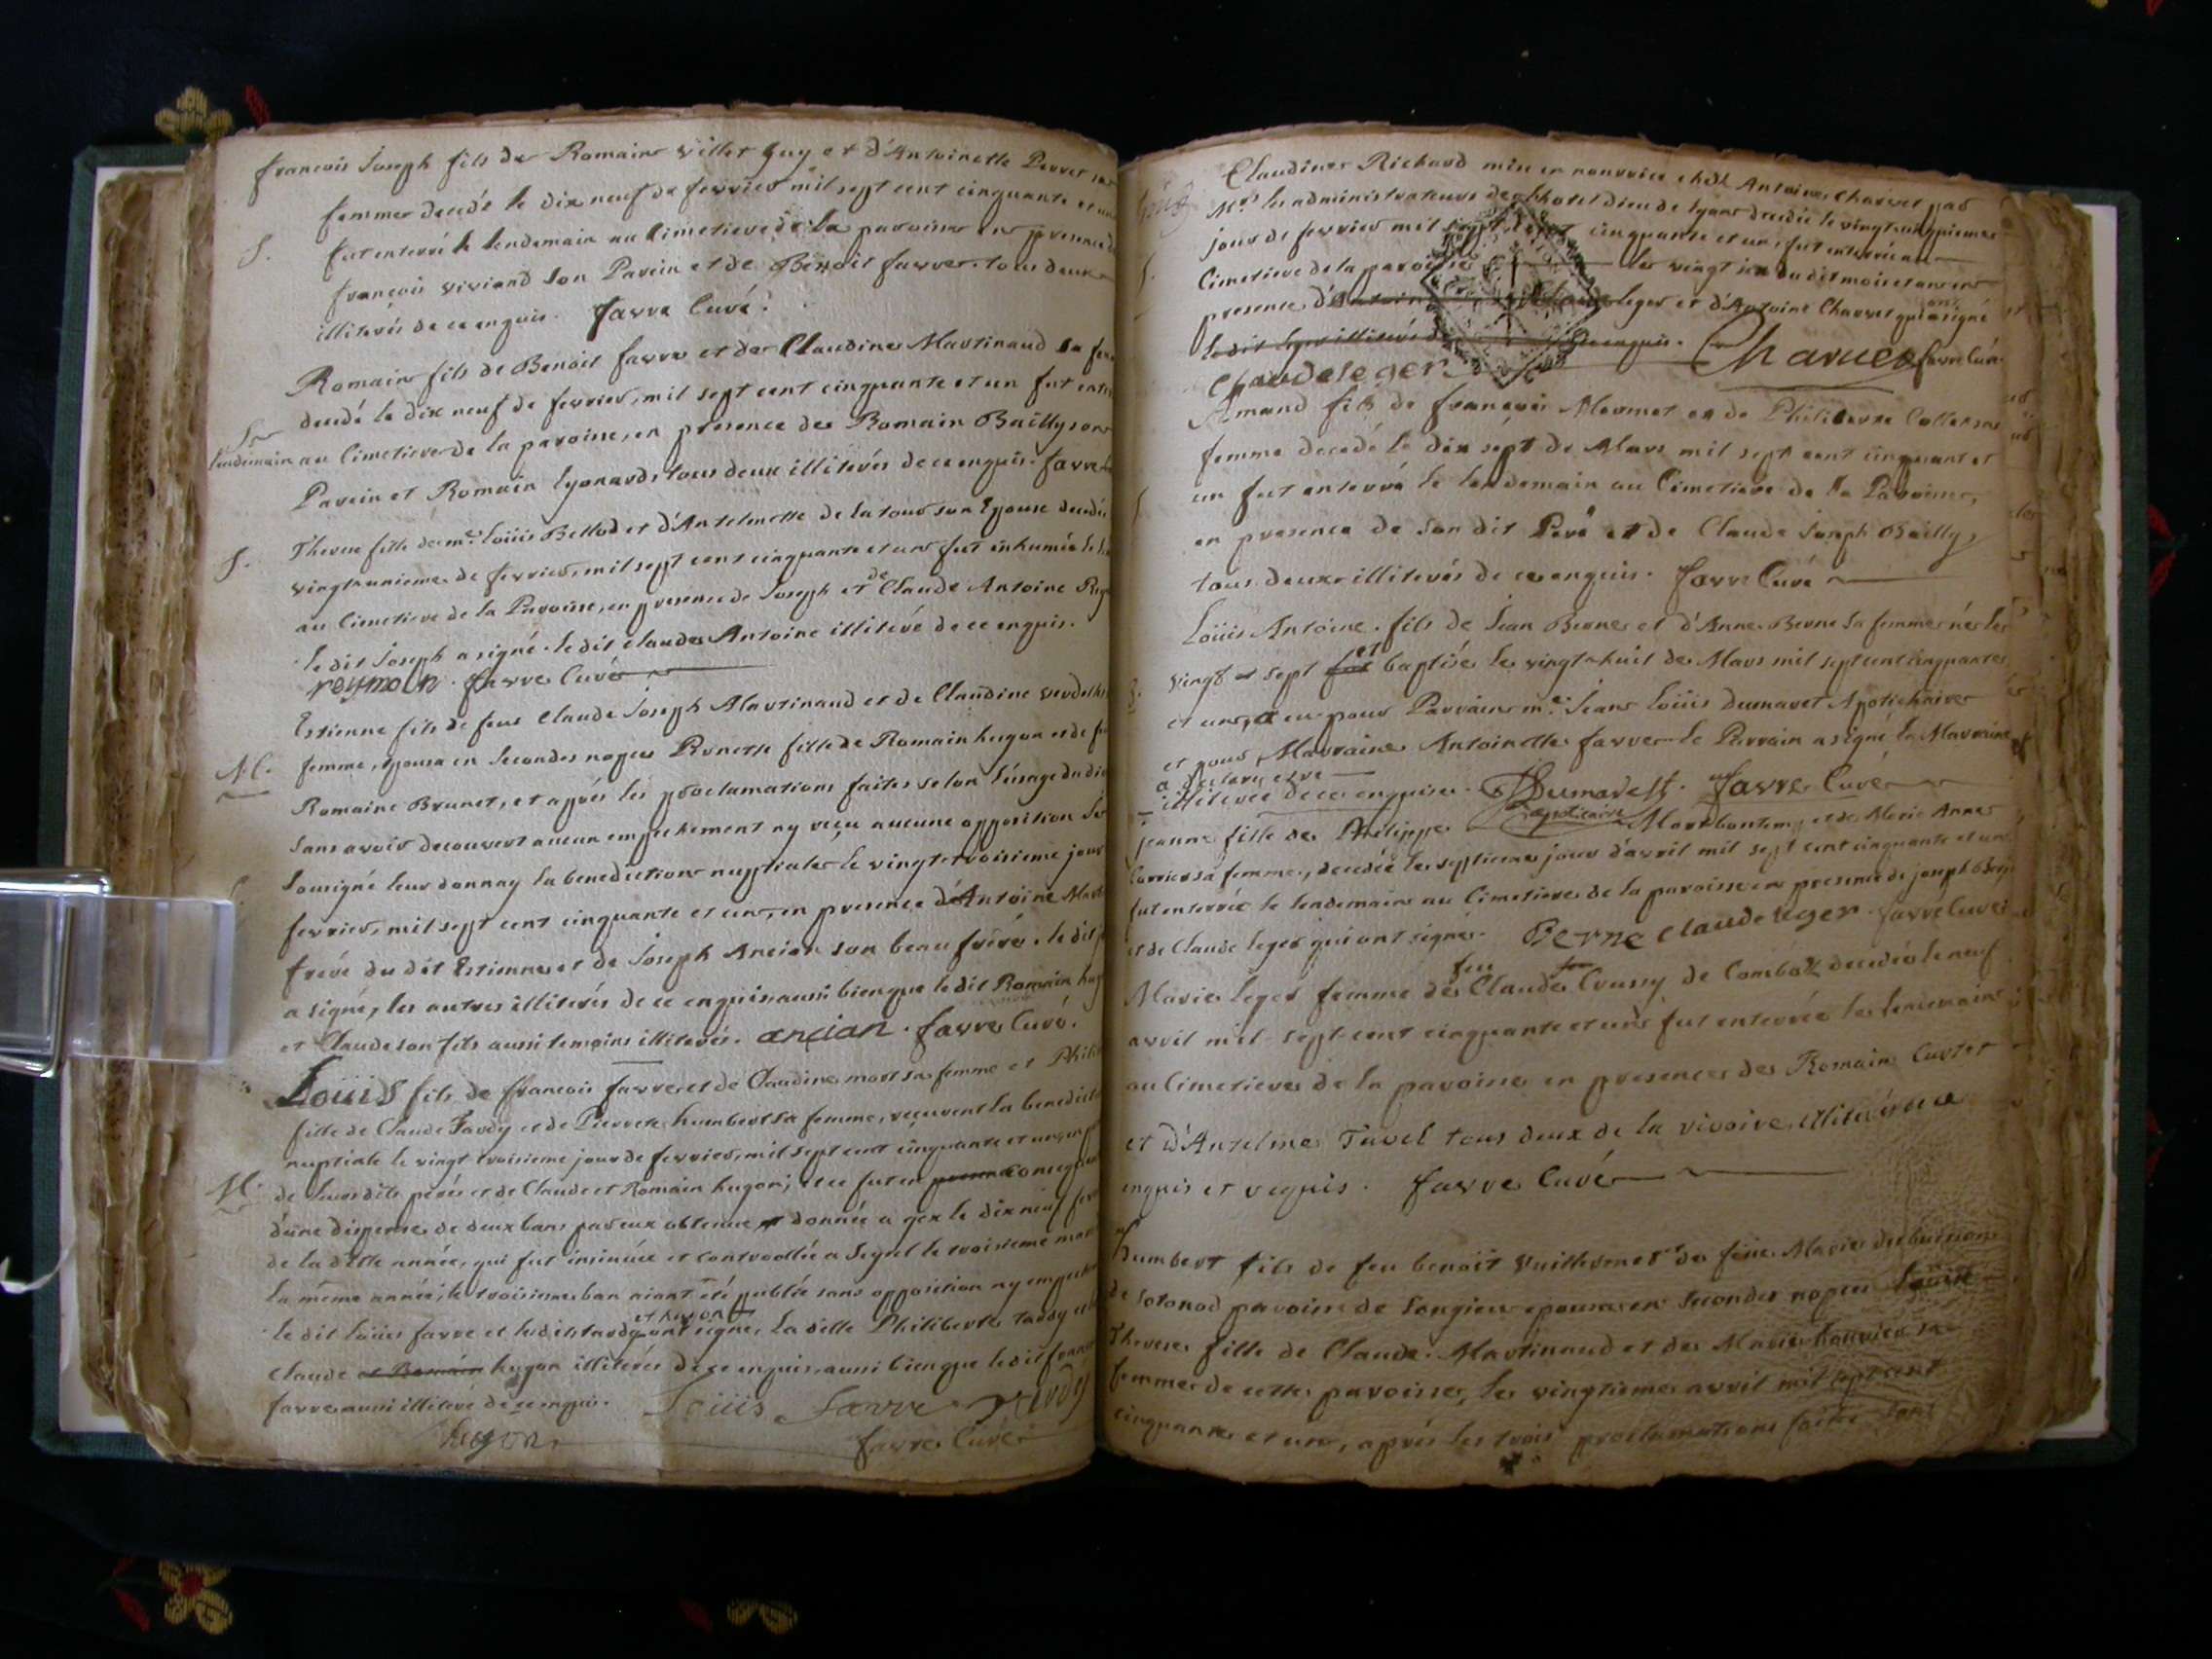 francois Joseph fils de Romain villet Guy et d'Antoinette Perret sa
femme decedé le dix neuf de fevrier mil sept cent cinquante et un
S. fut enterré le lendemain au Cimetiere de la paroisse en presence de
francois viviand son Parein et de Benoit favre tous deux
illiterés de ce enquis. favre Curé.
Romain fils de Benoit favre et de Claudine Martinaud sa fe
decedé le dix neuf de fevrier, mil sept cent cinquante et un fut enter
S. lendemain au Cimetiere de la paroisse, en presence de Romain Bailly son
Parein et Romain Lyonard, tous deux illiterés de ce enquis. favre
S. Therese fille de mre. Loüis Bellod et d'Antelmette de Latour son Epouse decedée
vingt unieme de fevrier, mil sept cent cinquante et un fut inhumée le
au Cimetiere de la Paroisse, en presence de Joseph et de Claude Antoine
le dit Joseph a signé le dit Claude Antoine illiteré de ce enquis.
reymon. favre Curé
Estienne fils de feu Claude Joseph Martinand et de Claudine
M. femme, epousa en Secondes nopces Pernette fille de Romain hugon et de
Romaine Brunet, et aprés les proclamations faites selon l'usage du
sans avoir decouvert aucun empechement ny reçu aucune opposition
Sousigné leur donnay la benediction nuptiale le vingt troisieme jour
fevrier, mil sept cent cinquante et un, en presence d'Antoine
frere du dit Estienne et de Joseph Ancian son beau frere. le dit
a signé, les autres illiterés de ce enquis aussi bien que le dit Romain
et Claude son fils aussi temoins illiterés. ancian. favre Curé.
Loüis fils de francois favre et de Claudine mort sa femme et
fille de Claude Tardy et de Pierrete humbert sa femme, reçurent la
nuptiale le vingt troisieme jour de fevrier, mil sept cent cinquante et un, en
M. de leurs dits peres et de Claude et Romain hugon; et ce fut en
d'une dispense de deux bans par eux obtenue et donnée a gex le dix neuf
de la ditte année, qui fut insinuée et controollée a Seyssel le troisieme
la même année; le troisieme ban aiant été publié sans opposition ny
le dit loüis favre et le dit tardy et hugon ont signé, la ditte Philiberte tardy et
Claude et Romain hugon illiterés de ce enquis aussi bien que le dit
favre aussi illiteré de ce enquis. Loüis favre
hugon favre Curé
Claudine Richard mise en nourrice chez Antoine Charvet par
Mrs. les administrateurs de l'hotel dieu de lyon decedée le vingt cinquieme
jour de fevrier mil sept cent cinquante et un, fut enterrée au
Cimetiere de la paroisse le vingt six du dit mois et an en
presence leger et d'Antoine Charvet qui ont signé
le dit leger illiteré de ce enquis. Charvet favre Curé
Claude leger
Amand fils de francois Mermet et de Philiberte Collet sa
femme decedé le dix sept de Mars mil sept cent cinquant et
un fut enterré le lendemain au Cimetiere de la Paroisse,
en presence de son dit Pere et de Claude Joseph Bailly,
tous deux illiterés de ce enquis. favre Curé
Loüis Antoine fils de Jean Berne et d'Anne Berne sa femme né le
vingt et sept fut et baptisé le vingt huit de Mars mil sept cent cinquante
B. et un, a eu pour Parrain mre. Jean Loüis dumaret Apotichaire
et pour Marraine Antoinette favre le Parrain a signé la Marraine
a declaré etre
illiterée de ce enquise. Dumarest. favre Curé
apoticaire
jeanne fille de Philippe Montbontems et de Marie Anne
Carrier sa femme, decedée le septieme jour d'avril mil sept cent cinquante et un
fut enterrée le lendemain au Cimetiere de la paroisse en presence de joseph
et de Claude leger qui ont signé. Berne Claude leger favre Curé
Marie leger femme de feu Claude Crussy de Combox decedée le neuf
avril mil sept cent cinquante et un fut enterrée le lendemain
au Cimetiere de la paroisse en presence de Romain Curtet
et d'Antelme Tavel tous deux de la rivoire, illiterés
enquis et requis. favre Curé
humbert fils de feu benoit Vuillermet de feüe Marie
de Sotonod paroisse de Songieu epousa en Secondes nopces
Therese fille de Claude Martinaud et de Marie sa
femme de cette paroisse, le vingtieme avril mil sept cent
cinquante et un, aprés les trois proclamations faites sans